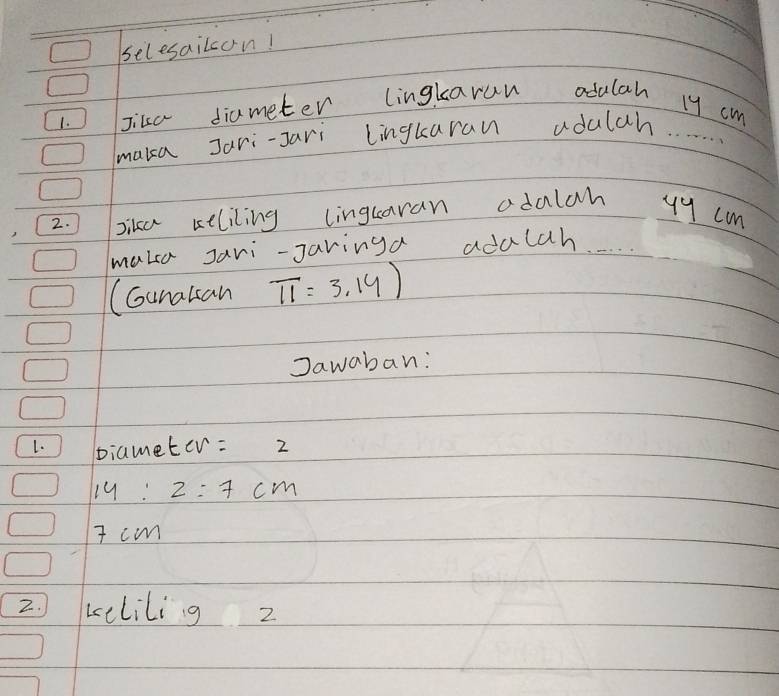 selesaikan!
1. Jika diameter lingkaran adalah 14 cm
maka Jari-Jari lingkaran adalah.......
2. Jika keliling lingkaran adalah 44 cm
maka Jari-Jaringa adalah......
(Gunakan π = 3.14)
Jawaban:
1. Diameter = 2
14 : 2 = 7 cm
7 cm
2. keliling 2